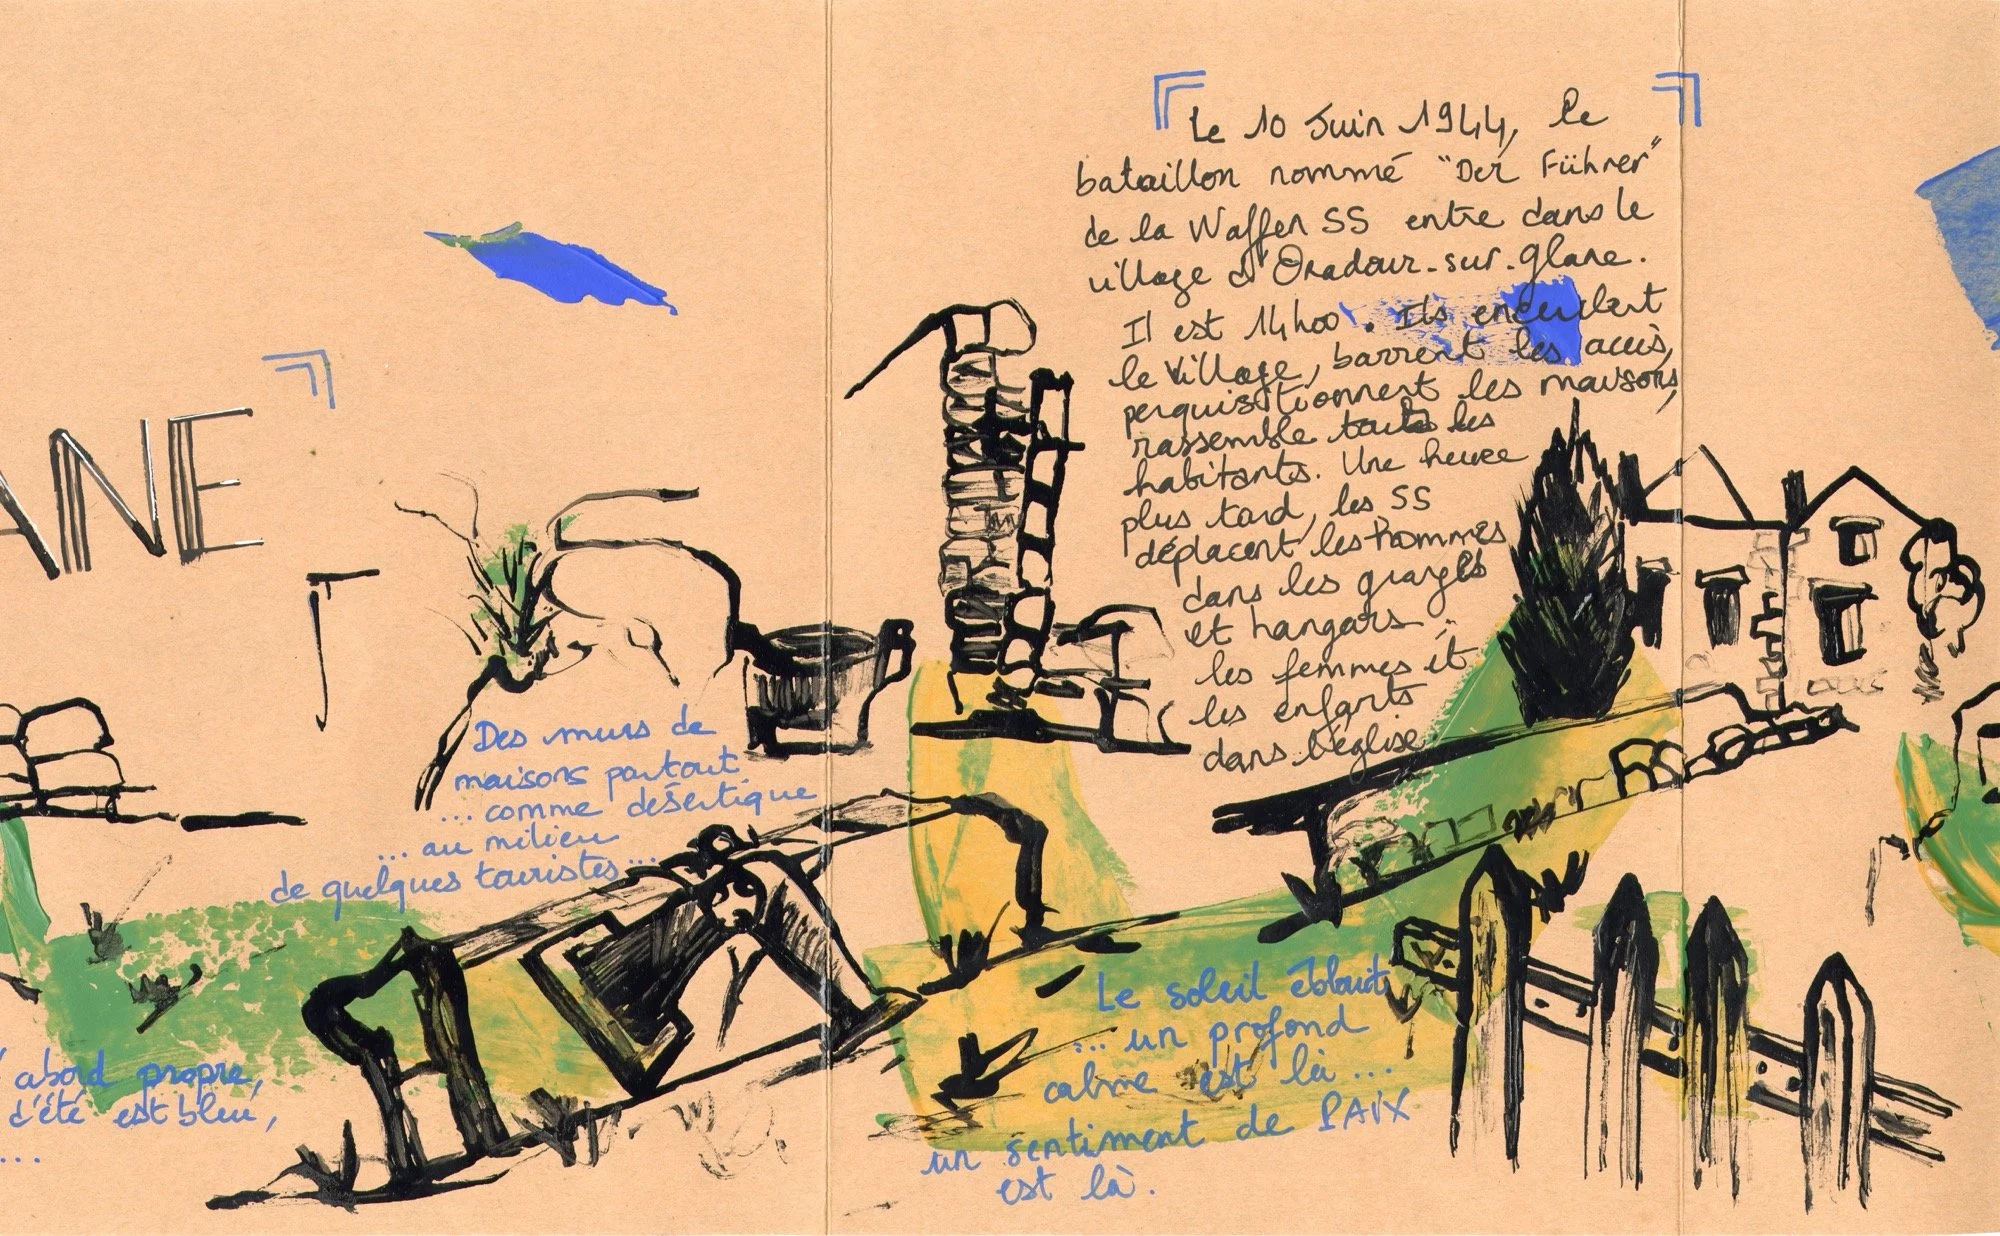 ANE
Des murs de
maisons partout
... comme désertique
... au milieu
de quelques touristes ...
abord propre,
d'été est bleu,
...
Le 10 Juin 1944, le
bataillon nommé "Der Führer"
de la Waffen SS entre dans le
village d'Oradour-sur-Glane.
Il est 14h00. Ils encerclent
le village, barrent les accès,
perquisitionnent les maisons,
rassemble touts les
habitants. Une heure
plus tard, les SS
déplacent les hommes
dans les garages
et hangars ;
les femmes et
les enfants
dans l'église
Le soleil éblouit
... un profond
calme est là ...
un sentiment de PAIX
est là.